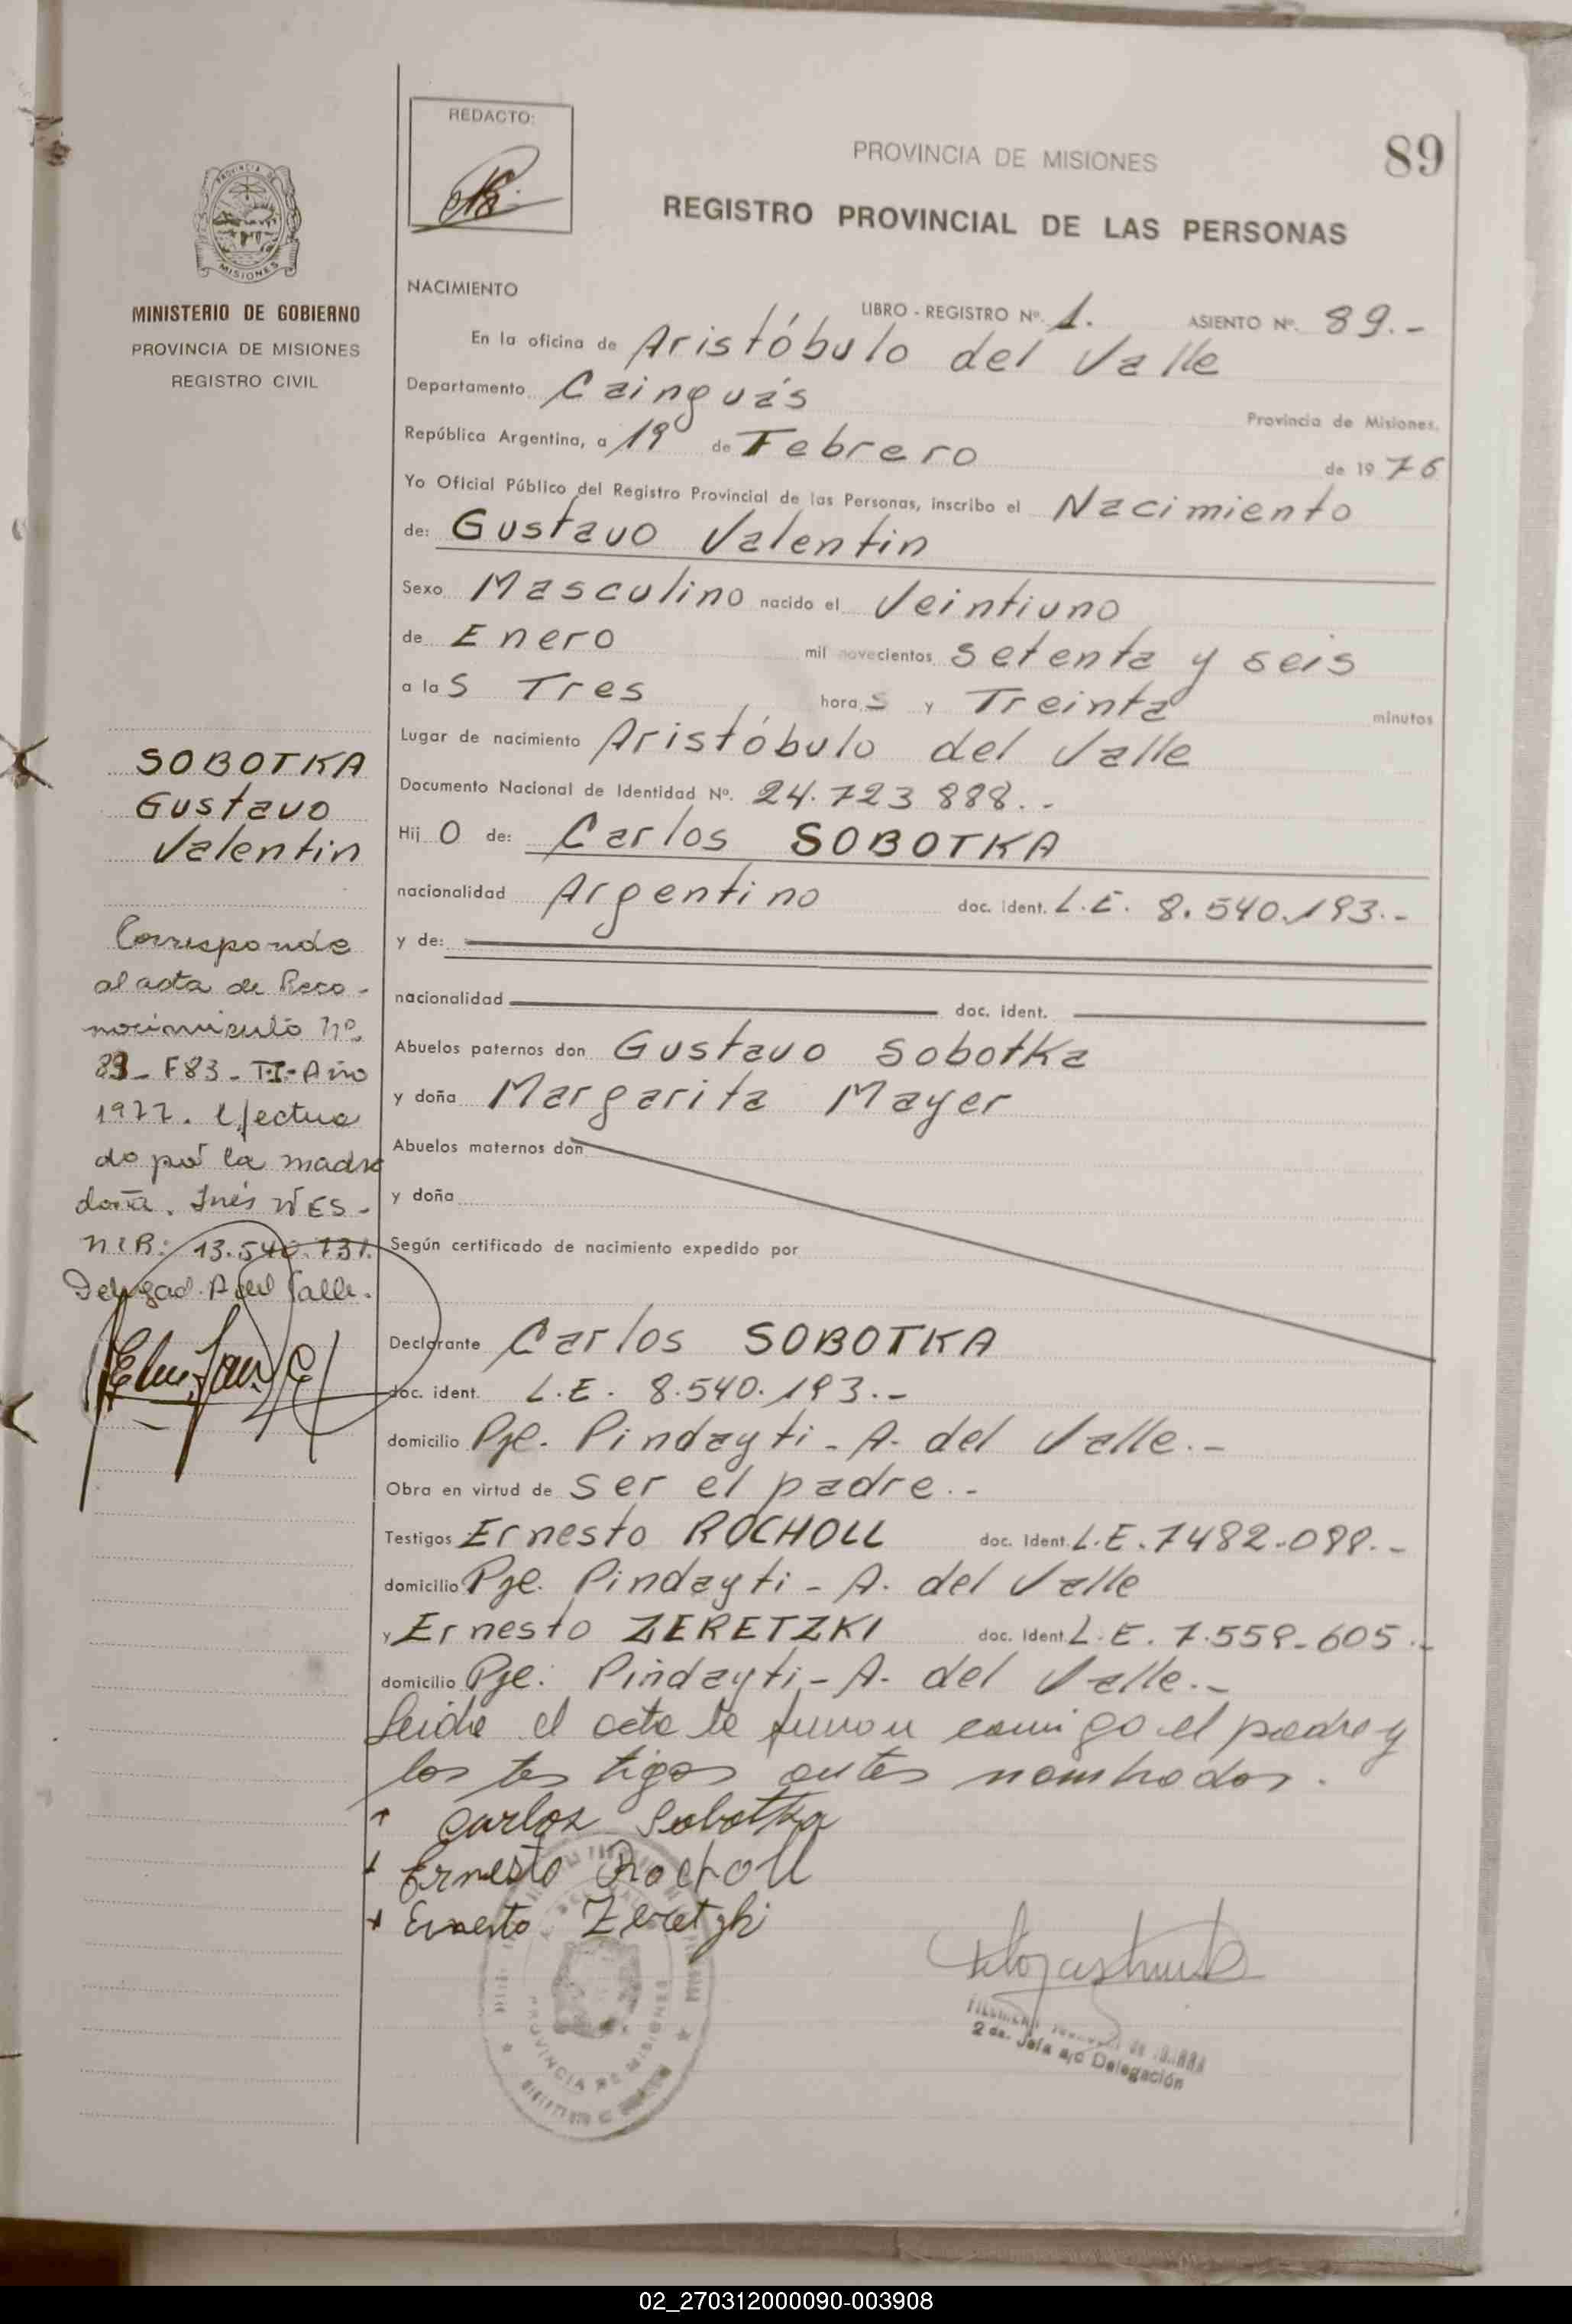 REDACTO:
89
PROVINCIA DE MISIONES
REGISTRO PROVINCIAL DE LAS PERSONAS
PROVINCIA DE
MISIONES
MINISTERIO DE GOBIERNO
PROVINCIA DE MISIONES
REGISTRO CIVIL
NACIMIENTO
LIBRO - REGISTRO Nº. 1. ASIENTO Nº. 89.-
En la oficina de Aristóbulo del Valle
Departamento Cainguás Provincia de Misiones.
República Argentina, a 19 de Febrero de 1976
Yo Oficial Público del Registro Provincial de las Personas, inscribo el Nacimiento
de: Gustavo Valentin
Sexo Masculino nacido el Veintiuno
de Enero mil novecientos setenta y seis
a las Tres horas y Treinta minutos
Lugar de nacimiento Aristóbulo del Valle
Documento Nacional de Identidad Nº. 24.723 888.-
Hijo de: Carlos SOBOTKA
nacionalidad Argentino doc. ident. L.E. 8.540.193.-
y de:
nacionalidad doc. ident.
Abuelos paternos don Gustavo Sobotka
y doña Margarita Mayer
Abuelos maternos don
y doña
Según certificado de nacimiento expedido por
Declarante Carlos SOBOTKA
doc. ident. L.E. 8.540.193.-
domicilio Pje. Pindayti - A. del Valle.-
Obra en virtud de ser el padre.-
Testigos Ernesto ROCHOLL doc. Ident. L.E. 7482.099.-
domicilio Pje. Pindayti - A. del Valle
y Ernesto ZERETZKI doc. Ident. L.E. 7.559-605.-
domicilio Pje. Pindayti - A. del Valle.-
Leida el acta la firman conmigo el padre y
los testigos antes nombrados.
Carlos Sobotka
Ernesto Rocholl
Ernesto Zeretzki
SOBOTKA
Gustavo
Valentin
Corresponde
al acta de Reco-
nocimiento Nº.
89 - F83 - T-I- Año
1977. efectua
do por la madre
doña. Inés WES-
NER: 13.540.731.
Delegad. A del Valle.
PROVINCIA DE MISIONES
2 da. Jefa a/c Delegación
02_270312000090-003908